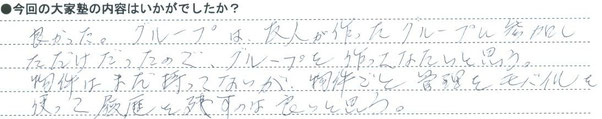 ●今回の大家塾の内容はいかがでしたか？
良かった。グループは、友人が作ったグループに参加し
ただけだったので、グループを作ってみたいと思う。
物件はまだ持ってないが、物件ごと管理をモバイルを
使って履歴を残すのは良いと思う。